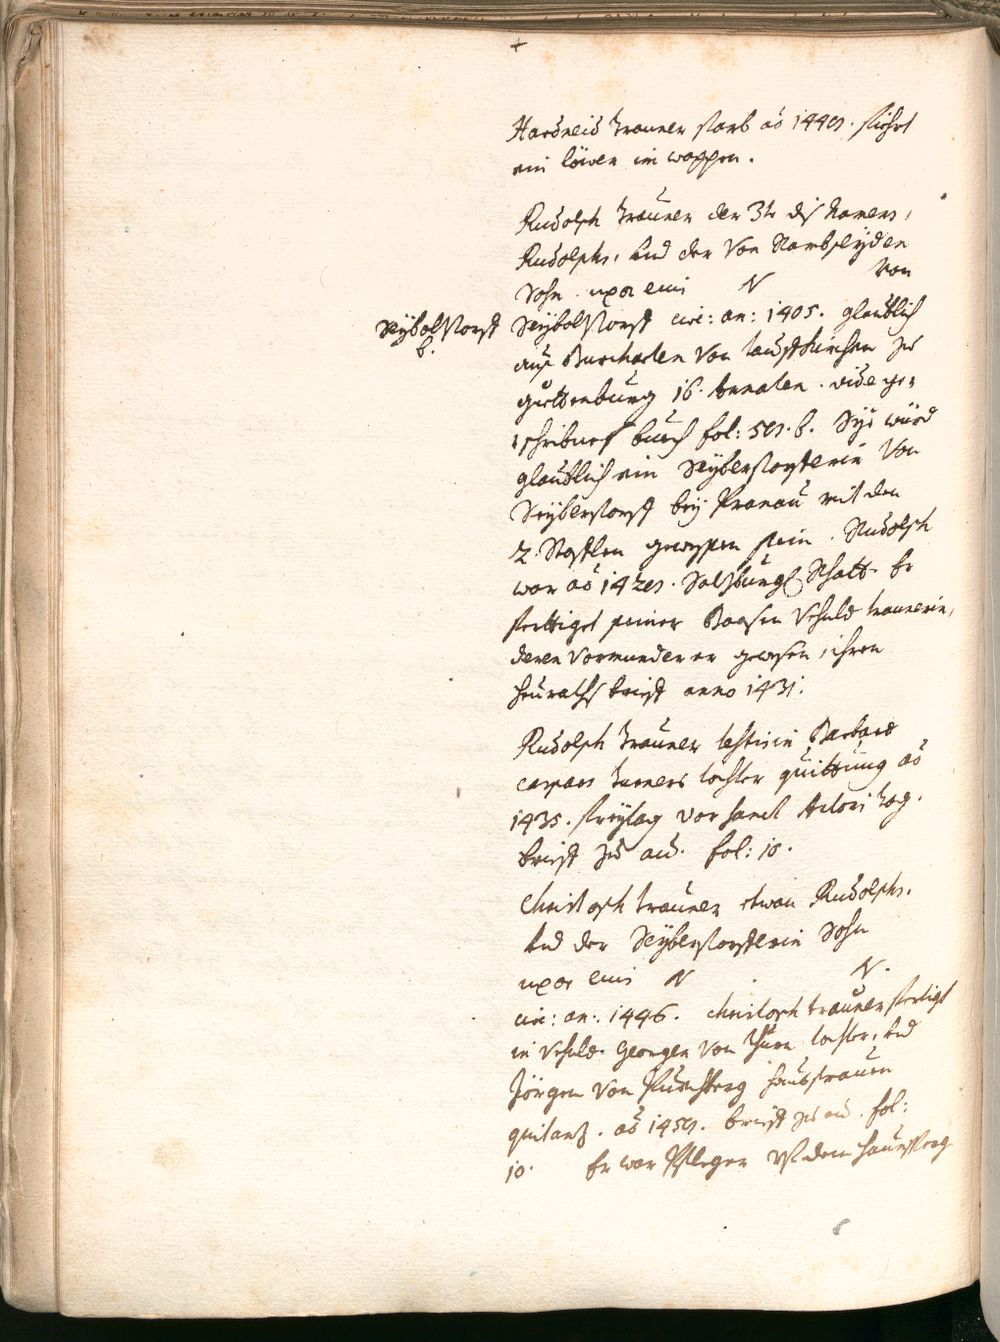 +
Hardneid Trauner starb aō 1449. führt
ein löwen im wappen.
Rudolph Trauner der 3te dis Namens,
Rudolphs, und der von
Sohn. uxor eius N von
Seyboltstorff
b.
Seyboltstorff circ: an: 1405. glaublich
auß Burcharten von Taufkhirchen zu
guettenburg 16. Annalen. vide ge-
schribnes buech fol: 59. b. Sye würd
glaublich ein Seyberstorfferin von
Seyberstorff bey Pranau mit den
2. gewessen sein. Rudolph
war aō 1429. Salzburg. Er
ferttiget seiner Baasen Traunerin,
deren Vormunder er gewesen, ihren
heuraths brieff anno 1431.
Rudolph Trauner Barbara
caspars Turners tochter quittung aō
1435. freytag vor sanct tag.
brieff zu au. fol: 10.
Christoph Trauner etwan Rudolphs,
und der Seyberstorfferin Sohn
uxor eius N N.
circ: an: 1446. Christoph Trauner fertigt
in Georgen von Thurn tochter, und
Jörgen von Puchberg hausfrauen
quitanz. aō 1459. brieff zu au. fol:
10. Er war Pfleger uf dem